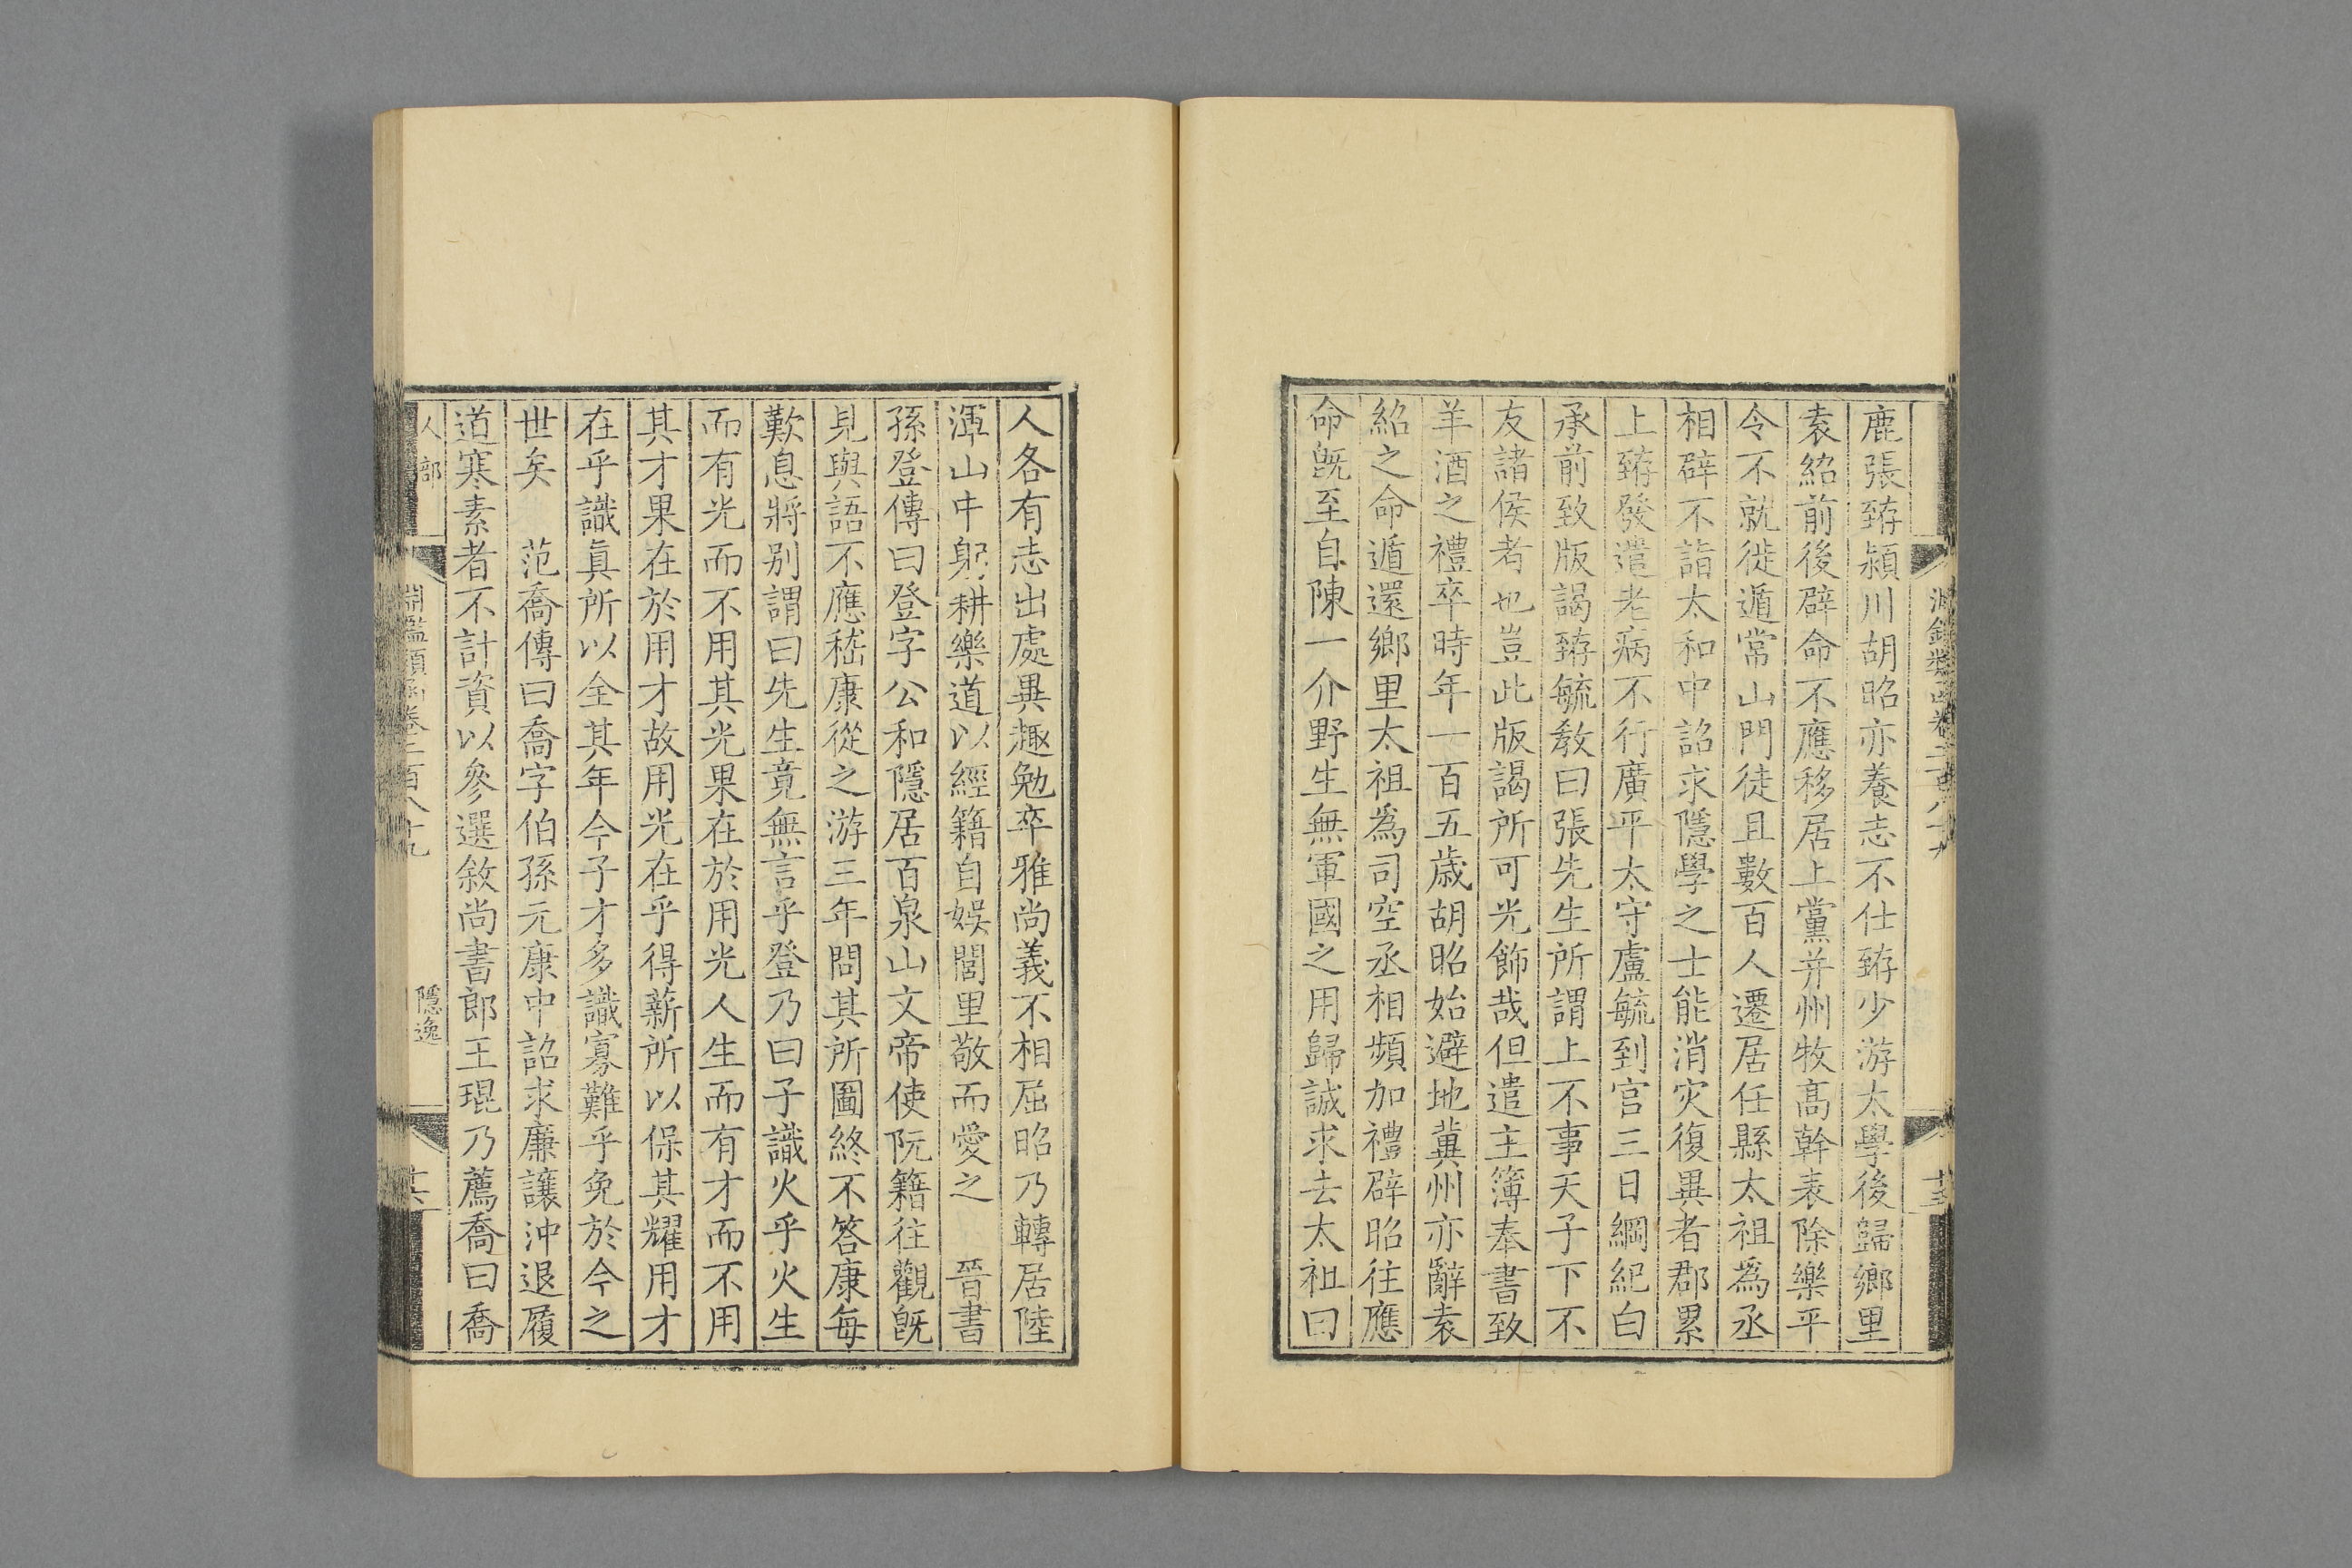 淵鑑類函卷二百八十九
十五
鹿張臶潁川胡昭亦養志不仕臶少游太學後歸鄉里
袁紹前後辟命不應移居上黨并州牧髙幹表除樂平
令不就徙遁常山門徒且數百人遷居任縣太祖爲丞
相辟不詣太和中詔求隱學之士能消災復異者郡累
上臶發遣老病不行廣平太守盧毓到官三日綱紀白
承前致版謁臶毓敎曰張先生所謂上不事天子下不
友諸侯者也豈此版謁所可光飾哉但遣主簿奉書致
羊酒之禮卒時年一百五歲胡昭始避地冀州亦辭袁
紹之命遁還鄉里太祖爲司空丞相頻加禮辟昭往應
命旣至自陳一介野生無軍國之用歸誠求去太祖曰
人各有志出處異趣勉卒雅尚義不相屈昭乃轉居陸
渾山中躬耕樂道以經籍自娛閭里敬而愛之　晉書
孫登傳曰登字公和隱居百泉山文帝使阮籍往觀旣
見與語不應嵇康從之游三年問其所圖終不答康每
歎息將別謂曰先生竟無言乎登乃曰子識火乎火生
而有光而不用其光果在於用光人生而有才而不用
其才果在於用才故用光在乎得薪所以保其耀用才
在乎識眞所以全其年今子才多識寡難乎免於今之
世矣　范喬傳曰喬字伯孫元康中詔求廉讓沖退履
道寒素者不計資以參選敘尚書郎王琨乃薦喬曰喬
人部
淵鑑類函卷二百八十九
隱逸
十六